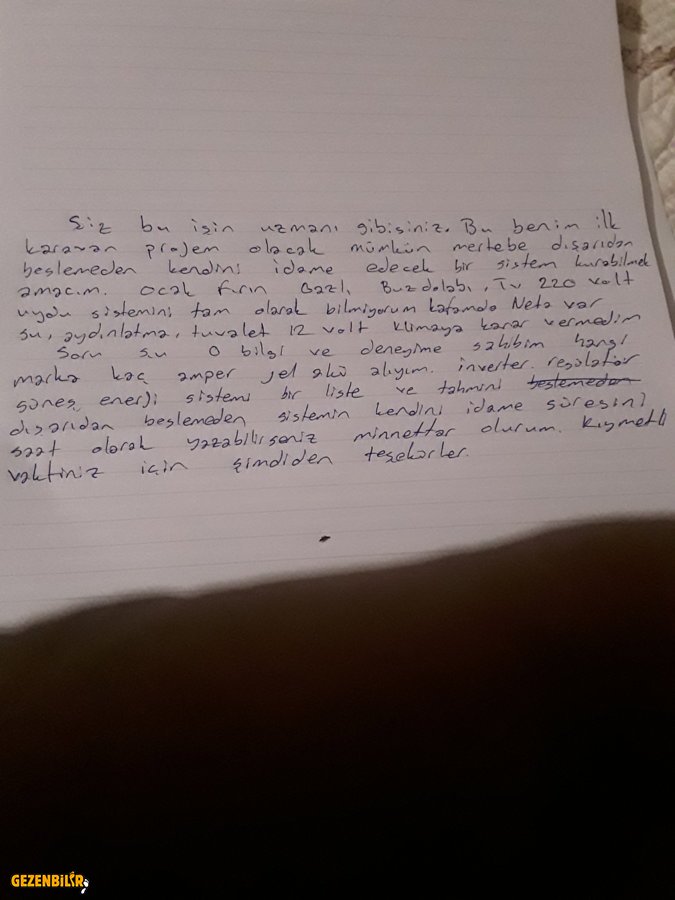 Siz bu işin uzmanı gibisiniz. Bu benim ilk
karavan projem olacak mümkün mertebe dışarıdan
beslemeden kendini idame edecek bir sistem kurabilmek
amacım. Ocak fırın Gazlı, Buzdolabı, Tv 220 volt
uydu sistemini tam olarak bilmiyorum kafamda Neta var
su, aydınlatma, tuvalet 12 volt klimaya karar vermedim
Soru şu O bilgi ve deneyime sahibim hangi
marka kaç amper jel akü alıyım. inverter, regülatör
güneş enerji sistemi bir liste ve tahmini beslemeden
dışarıdan beslemeden sistemin kendini idame süresini
saat olarak yazabilirseniz minnettar olurum. Kıymetli
vaktiniz için şimdiden teşekürler.
GEZENBİLİR